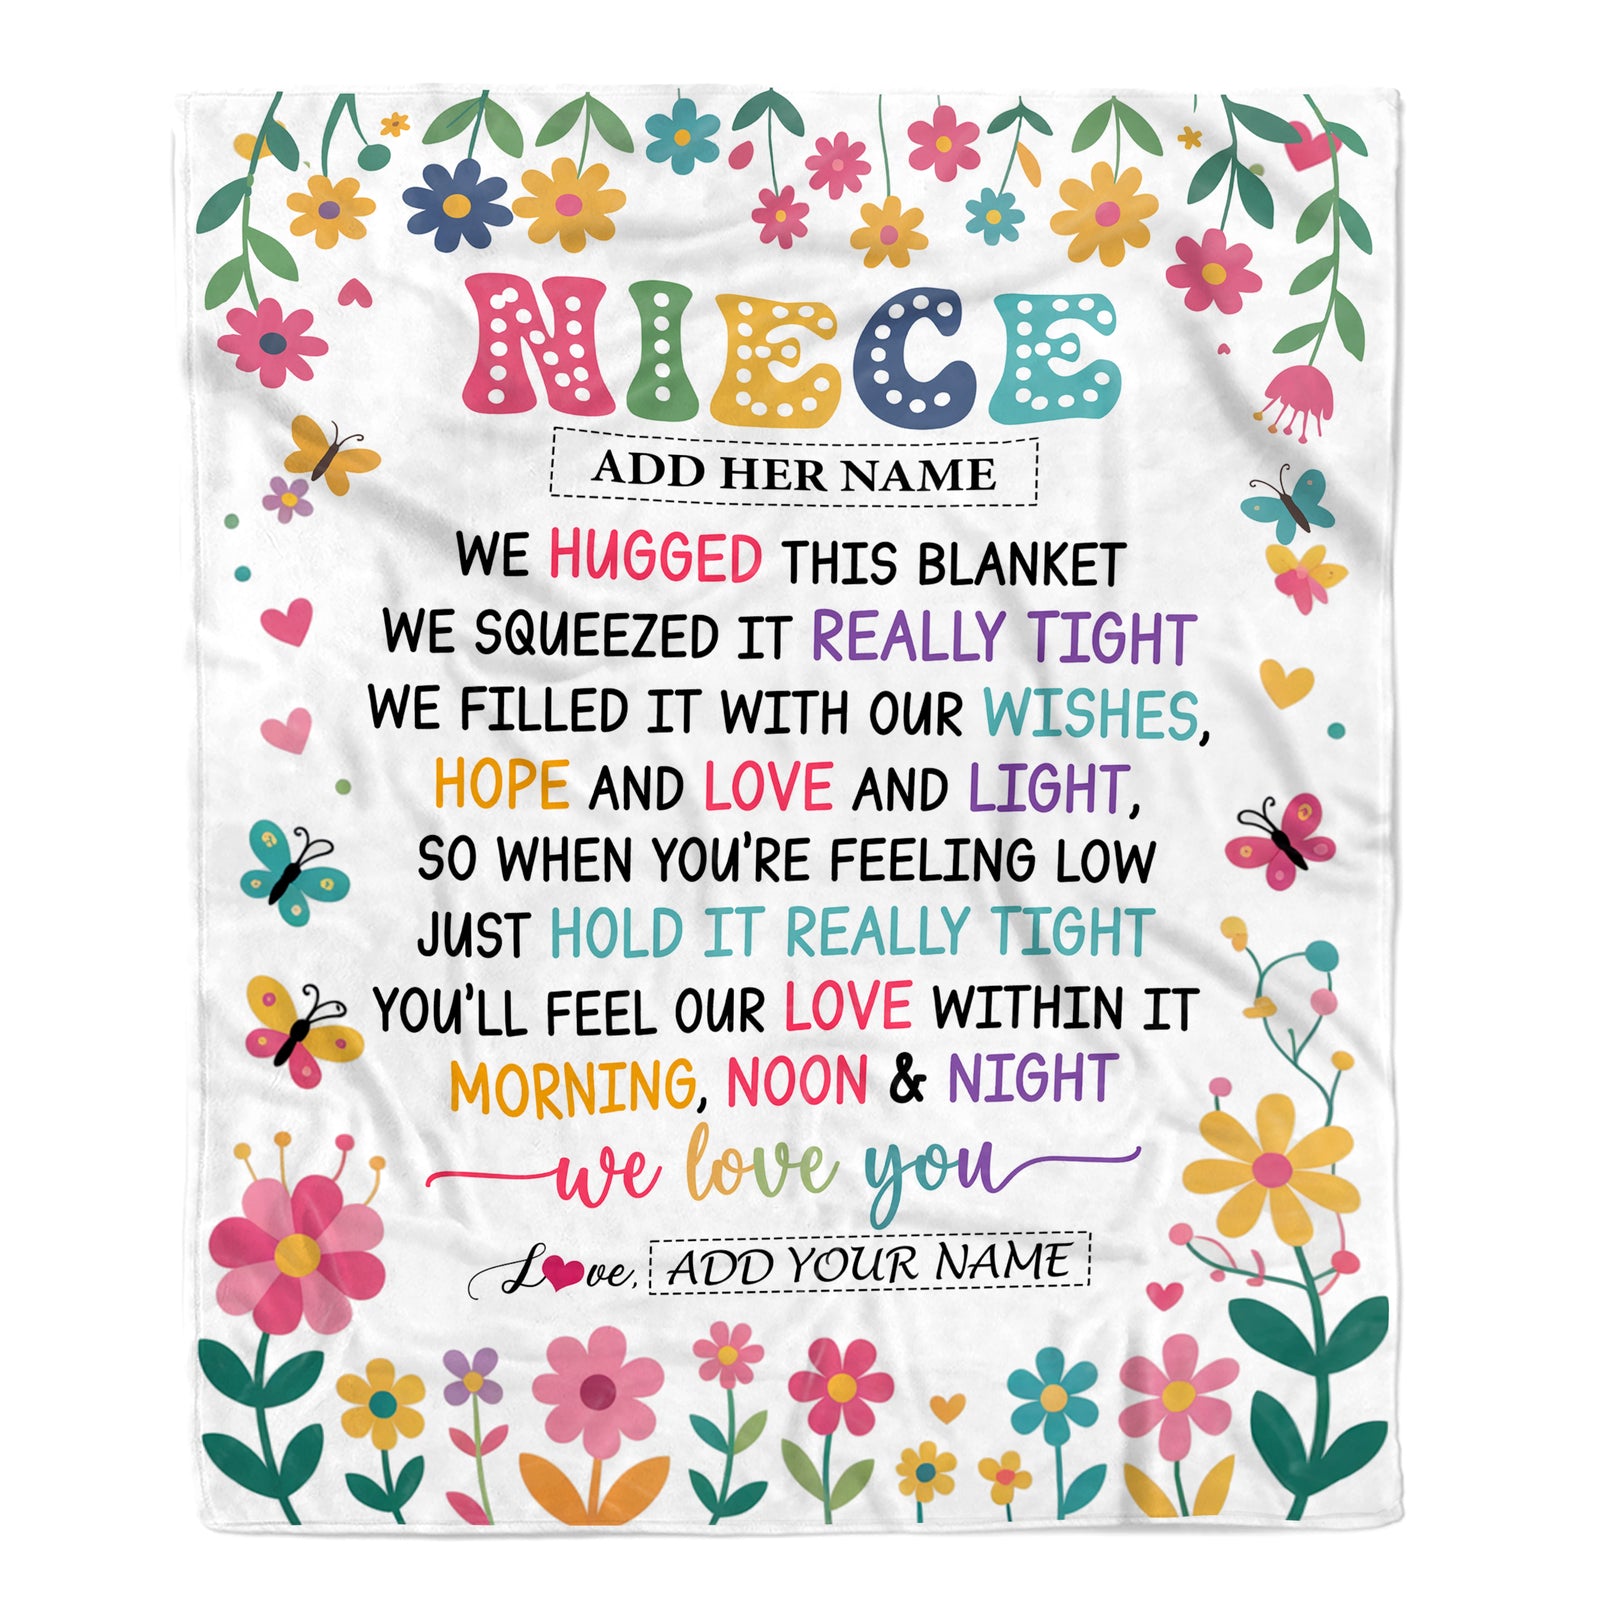 NIECE
ADD HER NAME
WE HUGGED THIS BLANKET
WE SQUEEZED IT REALLY TIGHT
WE FILLED IT WITH OUR WISHES,
HOPE AND LOVE AND LIGHT,
SO WHEN YOU'RE FEELING LOW
JUST HOLD IT REALLY TIGHT
YOU'LL FEEL OUR LOVE WITHIN IT
MORNING, NOON & NIGHT
we love you
Love, ADD YOUR NAME